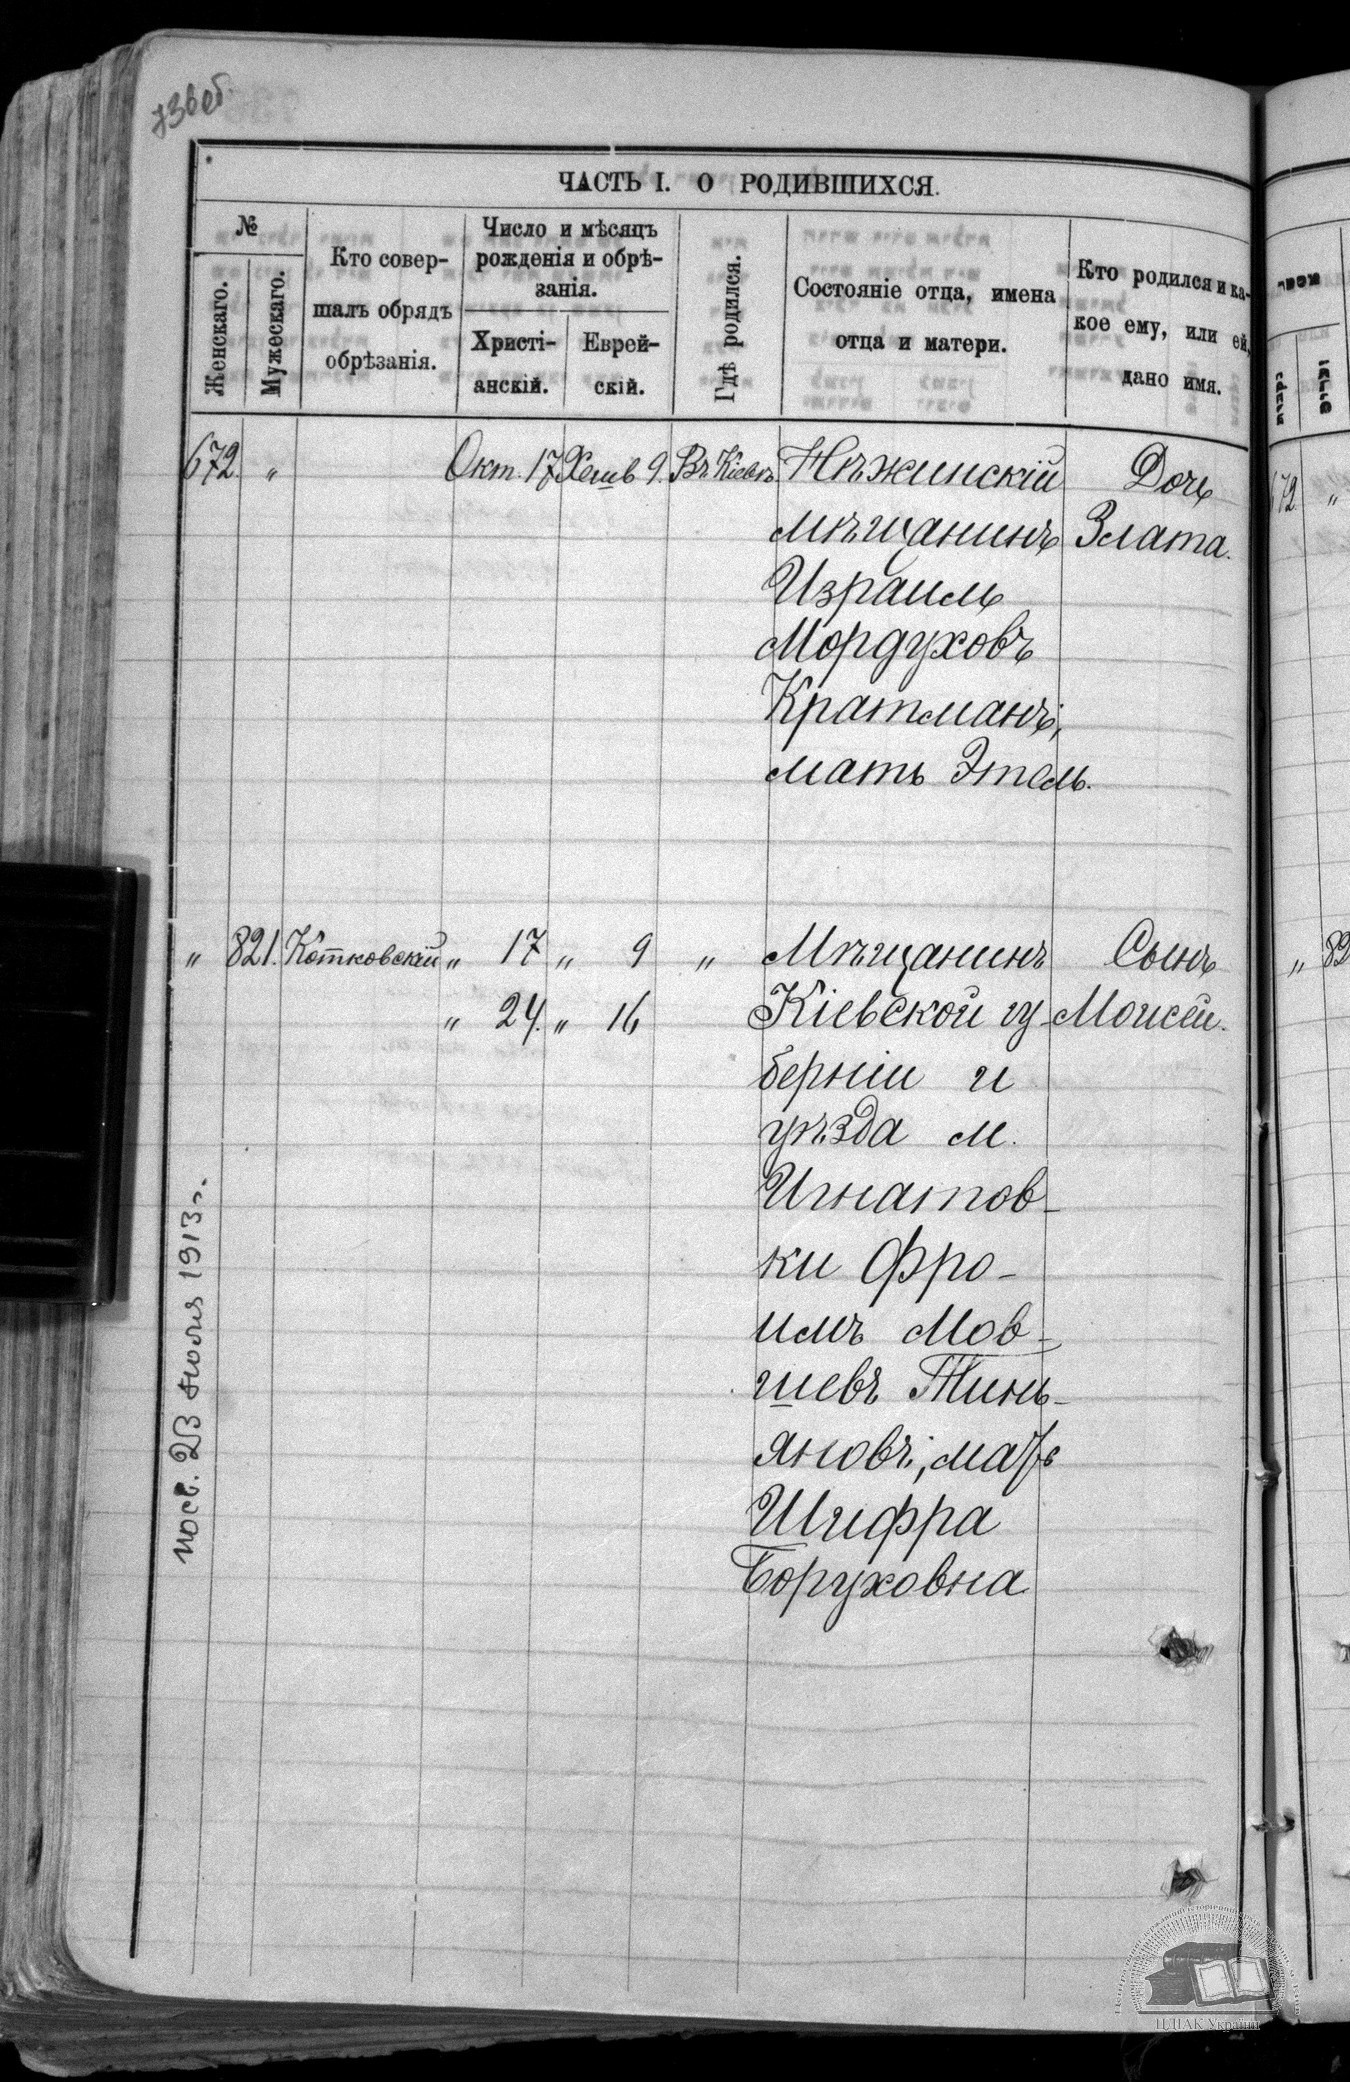 73 об.
ЧАСТЬ I. О РОДИВШИХСЯ.
№
Женскаго.
Мужескаго.
Кто совер-
шалъ обрядъ
обрѣзанія.
Число и мѣсяцъ
рожденія и обрѣ-
занія.
Христі-
анскій.
Еврей-
скій.
Гдѣ родился.
Состояніе отца, имена
отца и матери.
Кто родился и ка-
кое ему, или ей,
дано имя.
672. " Окт. 17 Хешв 9. Въ Кіевѣ Нѣжинскій Дочь
мѣщанинъ Злата.
Израиль
Мордуховъ
Кратманъ;
мать Этель.
" 821. Котковскій " 17 " 9 " Мѣщанинъ Сынъ
" 24. " 16 Кіевской гу- Моисей.
берніи и
уѣзда м.
Игнатов-
ки Фро-
имъ Мов-
шевъ Тинь-
яновъ; мать
Шифра
Боруховна
посв. 23 Июля 1913 г.
672. "
" 82
ЦДІАК України